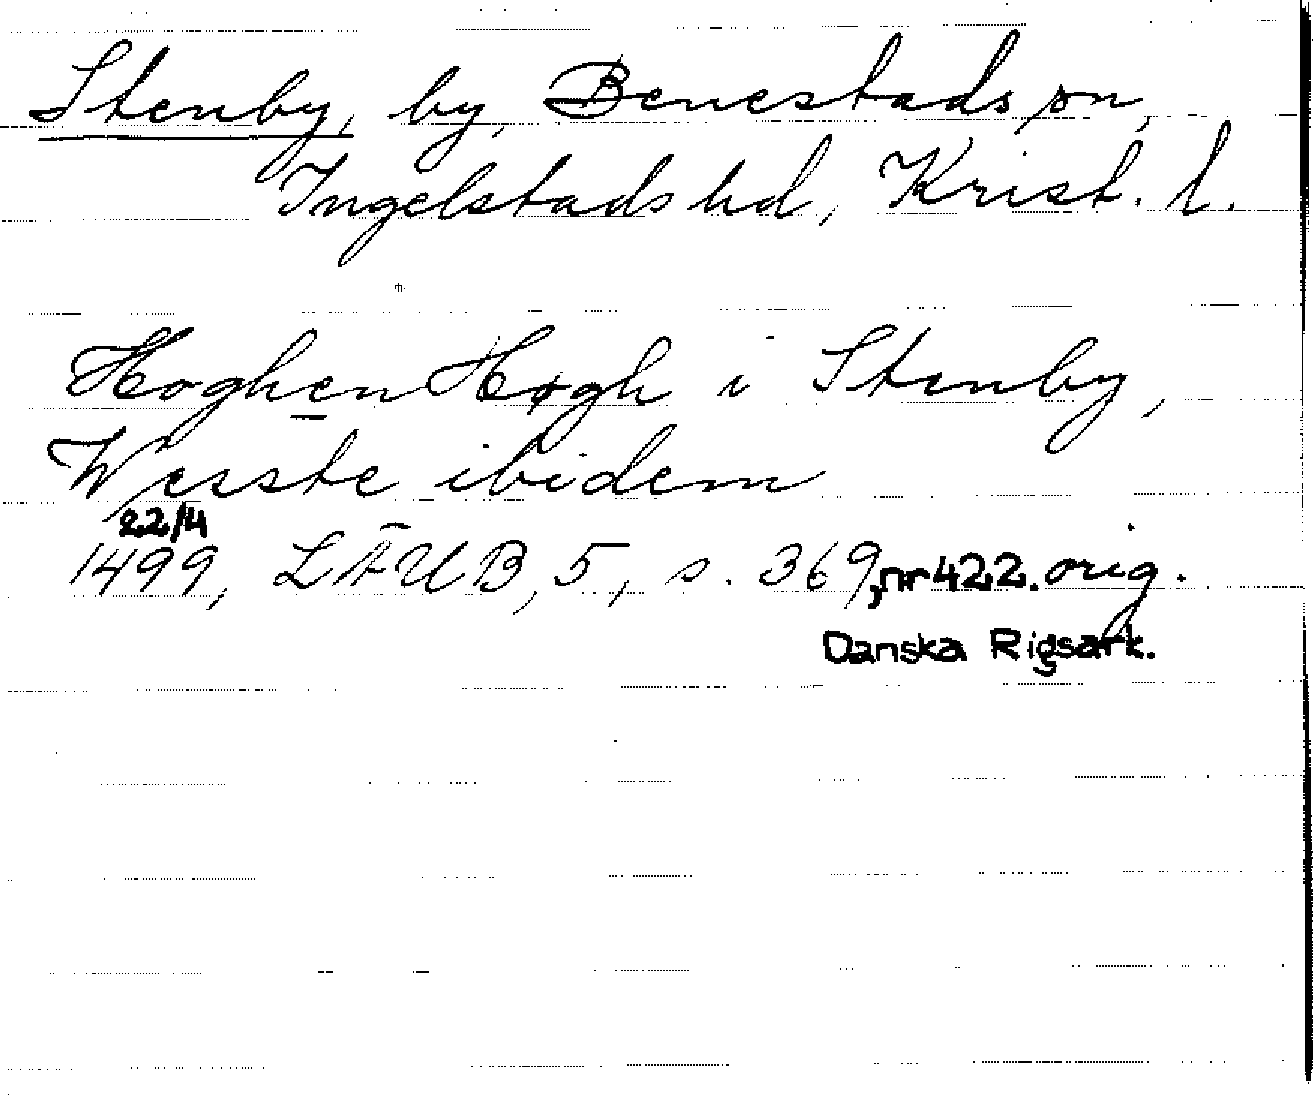 Stenby, by, Benestads sn,
Ingelstads hd, Krist. l.
Hoghen Høgh i Stenby,
Wesste ibidem
22/4
1499, LÄUB, 5, s. 369, nr 422. orig.
Danska Rigsark.